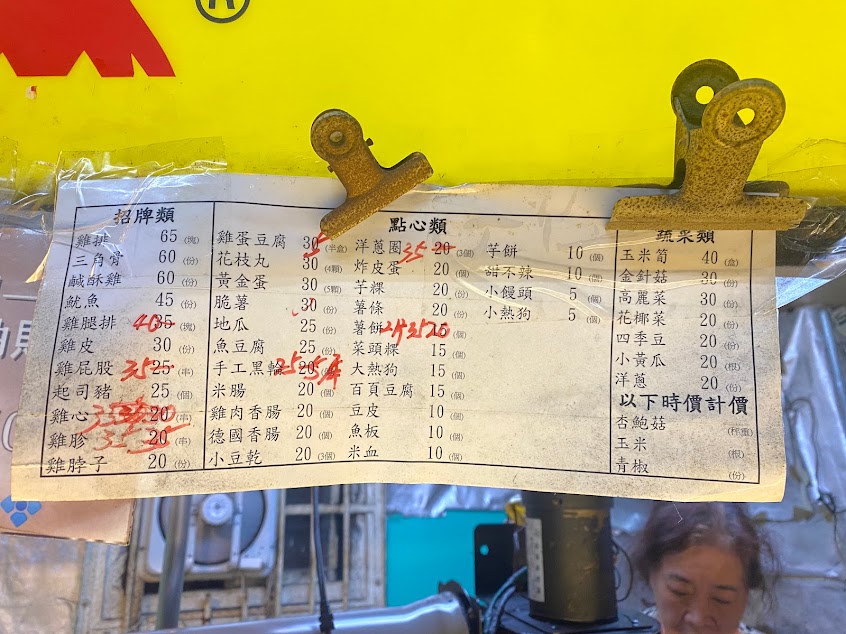 ®
招牌類
雞排 65 (塊)
三角骨 60 (份)
鹹酥雞 60 (份)
魷魚 45 (份)
雞腿排 40 35 (塊)
雞皮 30 (份)
雞屁股 35 25 (串)
起司豬 25 (個)
雞心 20 (串)
雞胗 35 20 (串)
雞脖子 20 (份)
點心類
雞蛋豆腐 30 (半盒)
花枝丸 30 (4顆)
黃金蛋 30 (5顆)
脆薯 30 (份)
地瓜 25 (份)
魚豆腐 25 (份)
手工黑輪 25 20 (個)
米腸 20 (個)
雞肉香腸 20 (個)
德國香腸 20 (個)
小豆乾 20 (3個)
洋蔥圈 35 20 (3個)
炸皮蛋 20 (個)
芋粿 20 (份)
薯條 20 (份)
薯餅 (個)
菜頭粿 15 (個)
大熱狗 15 (個)
百頁豆腐 15 (個)
豆皮 10 (個)
魚板 10 (個)
米血 10 (個)
芋餅 10 (個)
甜不辣 10 (個)
小饅頭 5 (個)
小熱狗 5 (個)
蔬菜類
玉米筍 40 (盒)
金針菇 30 (份)
高麗菜 30 (份)
花椰菜 20 (份)
四季豆 20 (份)
小黃瓜 20 (根)
洋蔥 20 (份)
以下時價計價
杏鮑菇 (秤重)
玉米 (根)
青椒 (份)